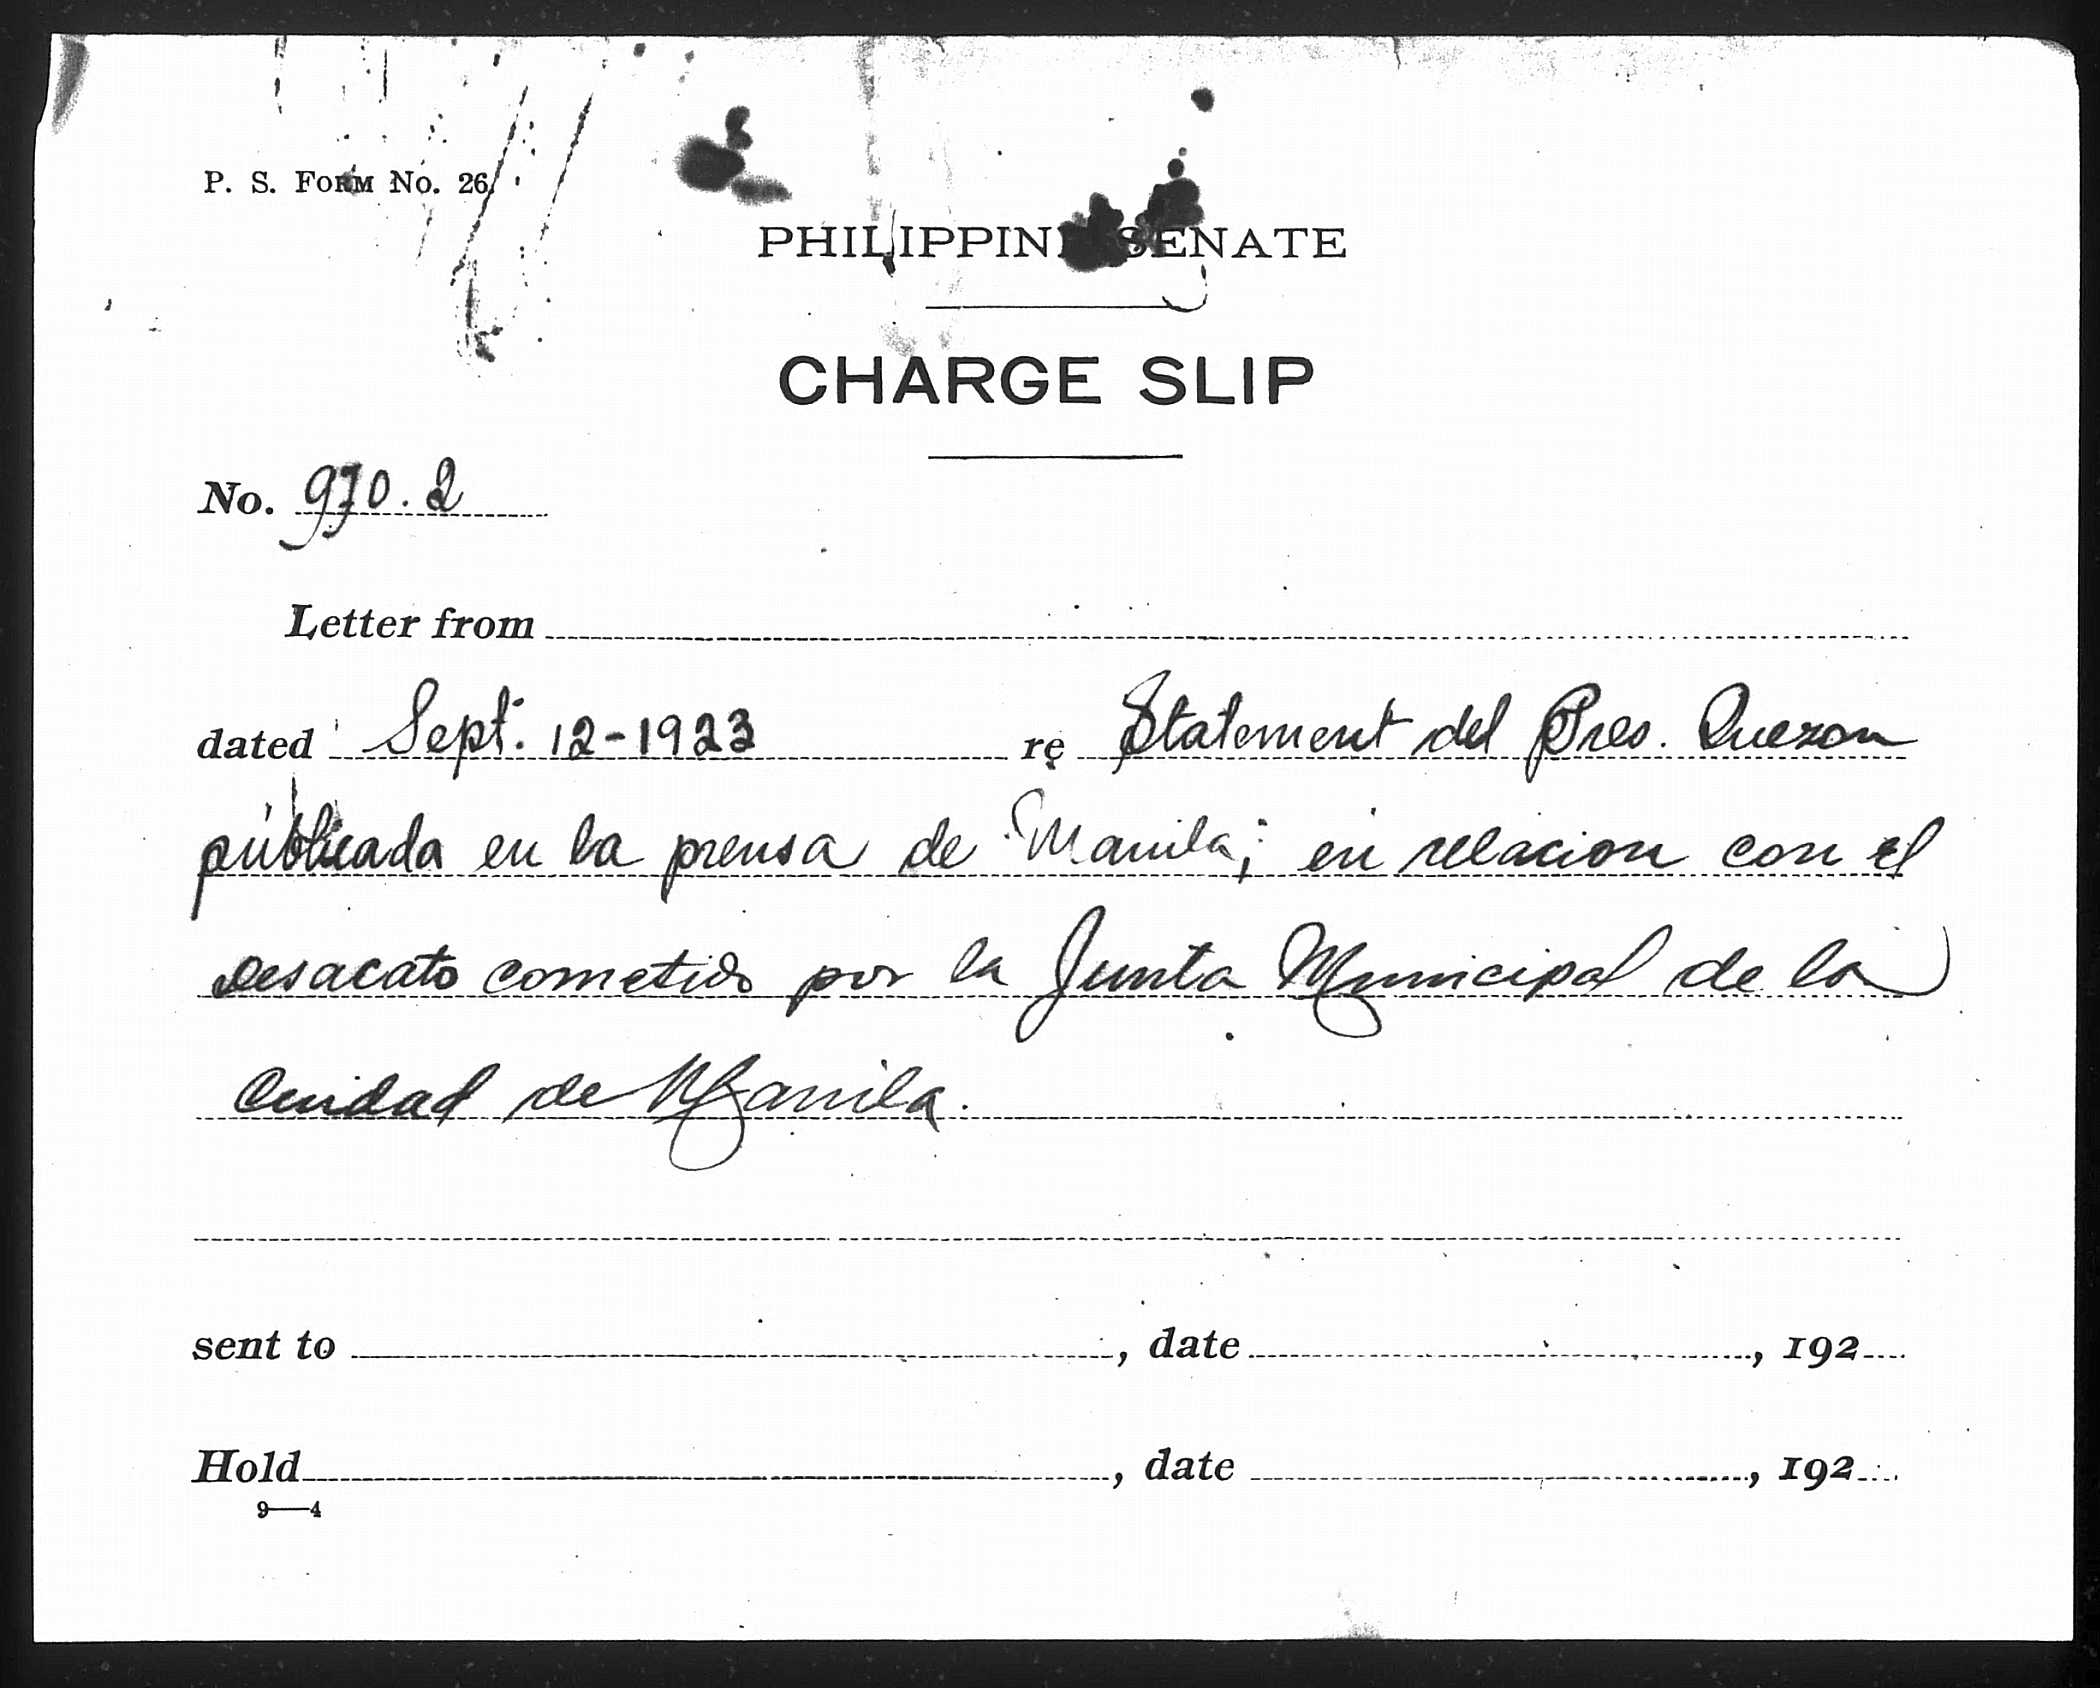 P. S. Form No. 26
PHILIPPINE SENATE
CHARGE SLIP
No. 970.2
Letter from
dated Sept. 12-1923 re Statement del Pres. Quezon
publicada en la prensa de Manila; en relacion con el
desacato cometido por la Junta Municipal de la
Ciudad de Manila.
sent to , date , 192
Hold , date , 192
9—4